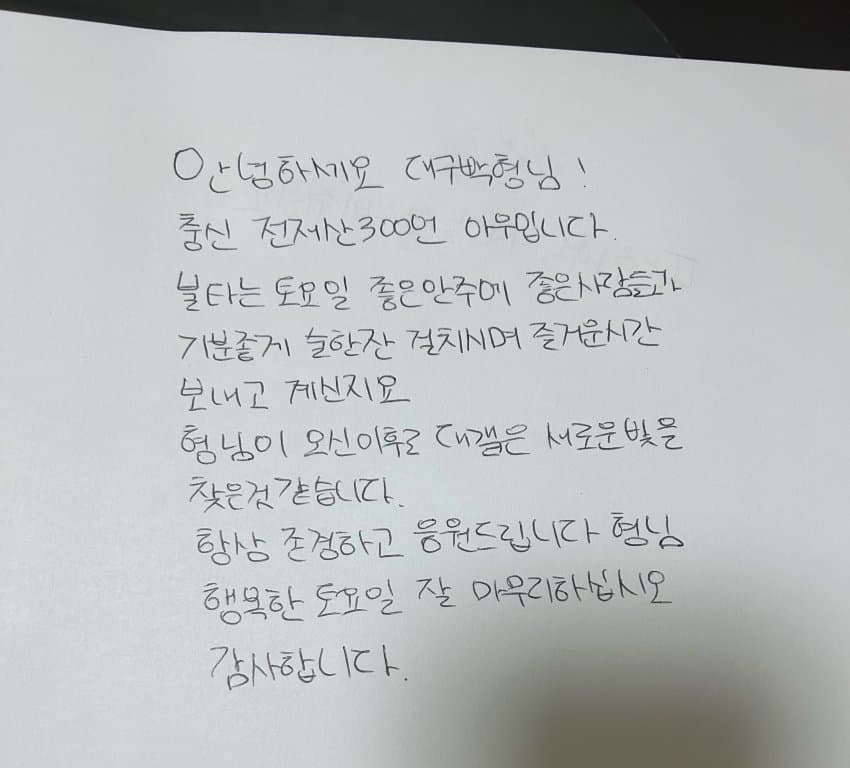 안녕하세요 대구박형님!
충신 전재산300언 아우입니다.
불타는 토요일 좋은안주에 좋은사람들과
기분좋게 술한잔 걸치시며 즐거운시간
보내고 계신지요
형님이 오신이후로 대갤은 서로운빛을
찾은것같습니다.
항상 존경하고 응원드립니다 형님
행복한 토요일 잘 마무리하십시오
감사합니다.